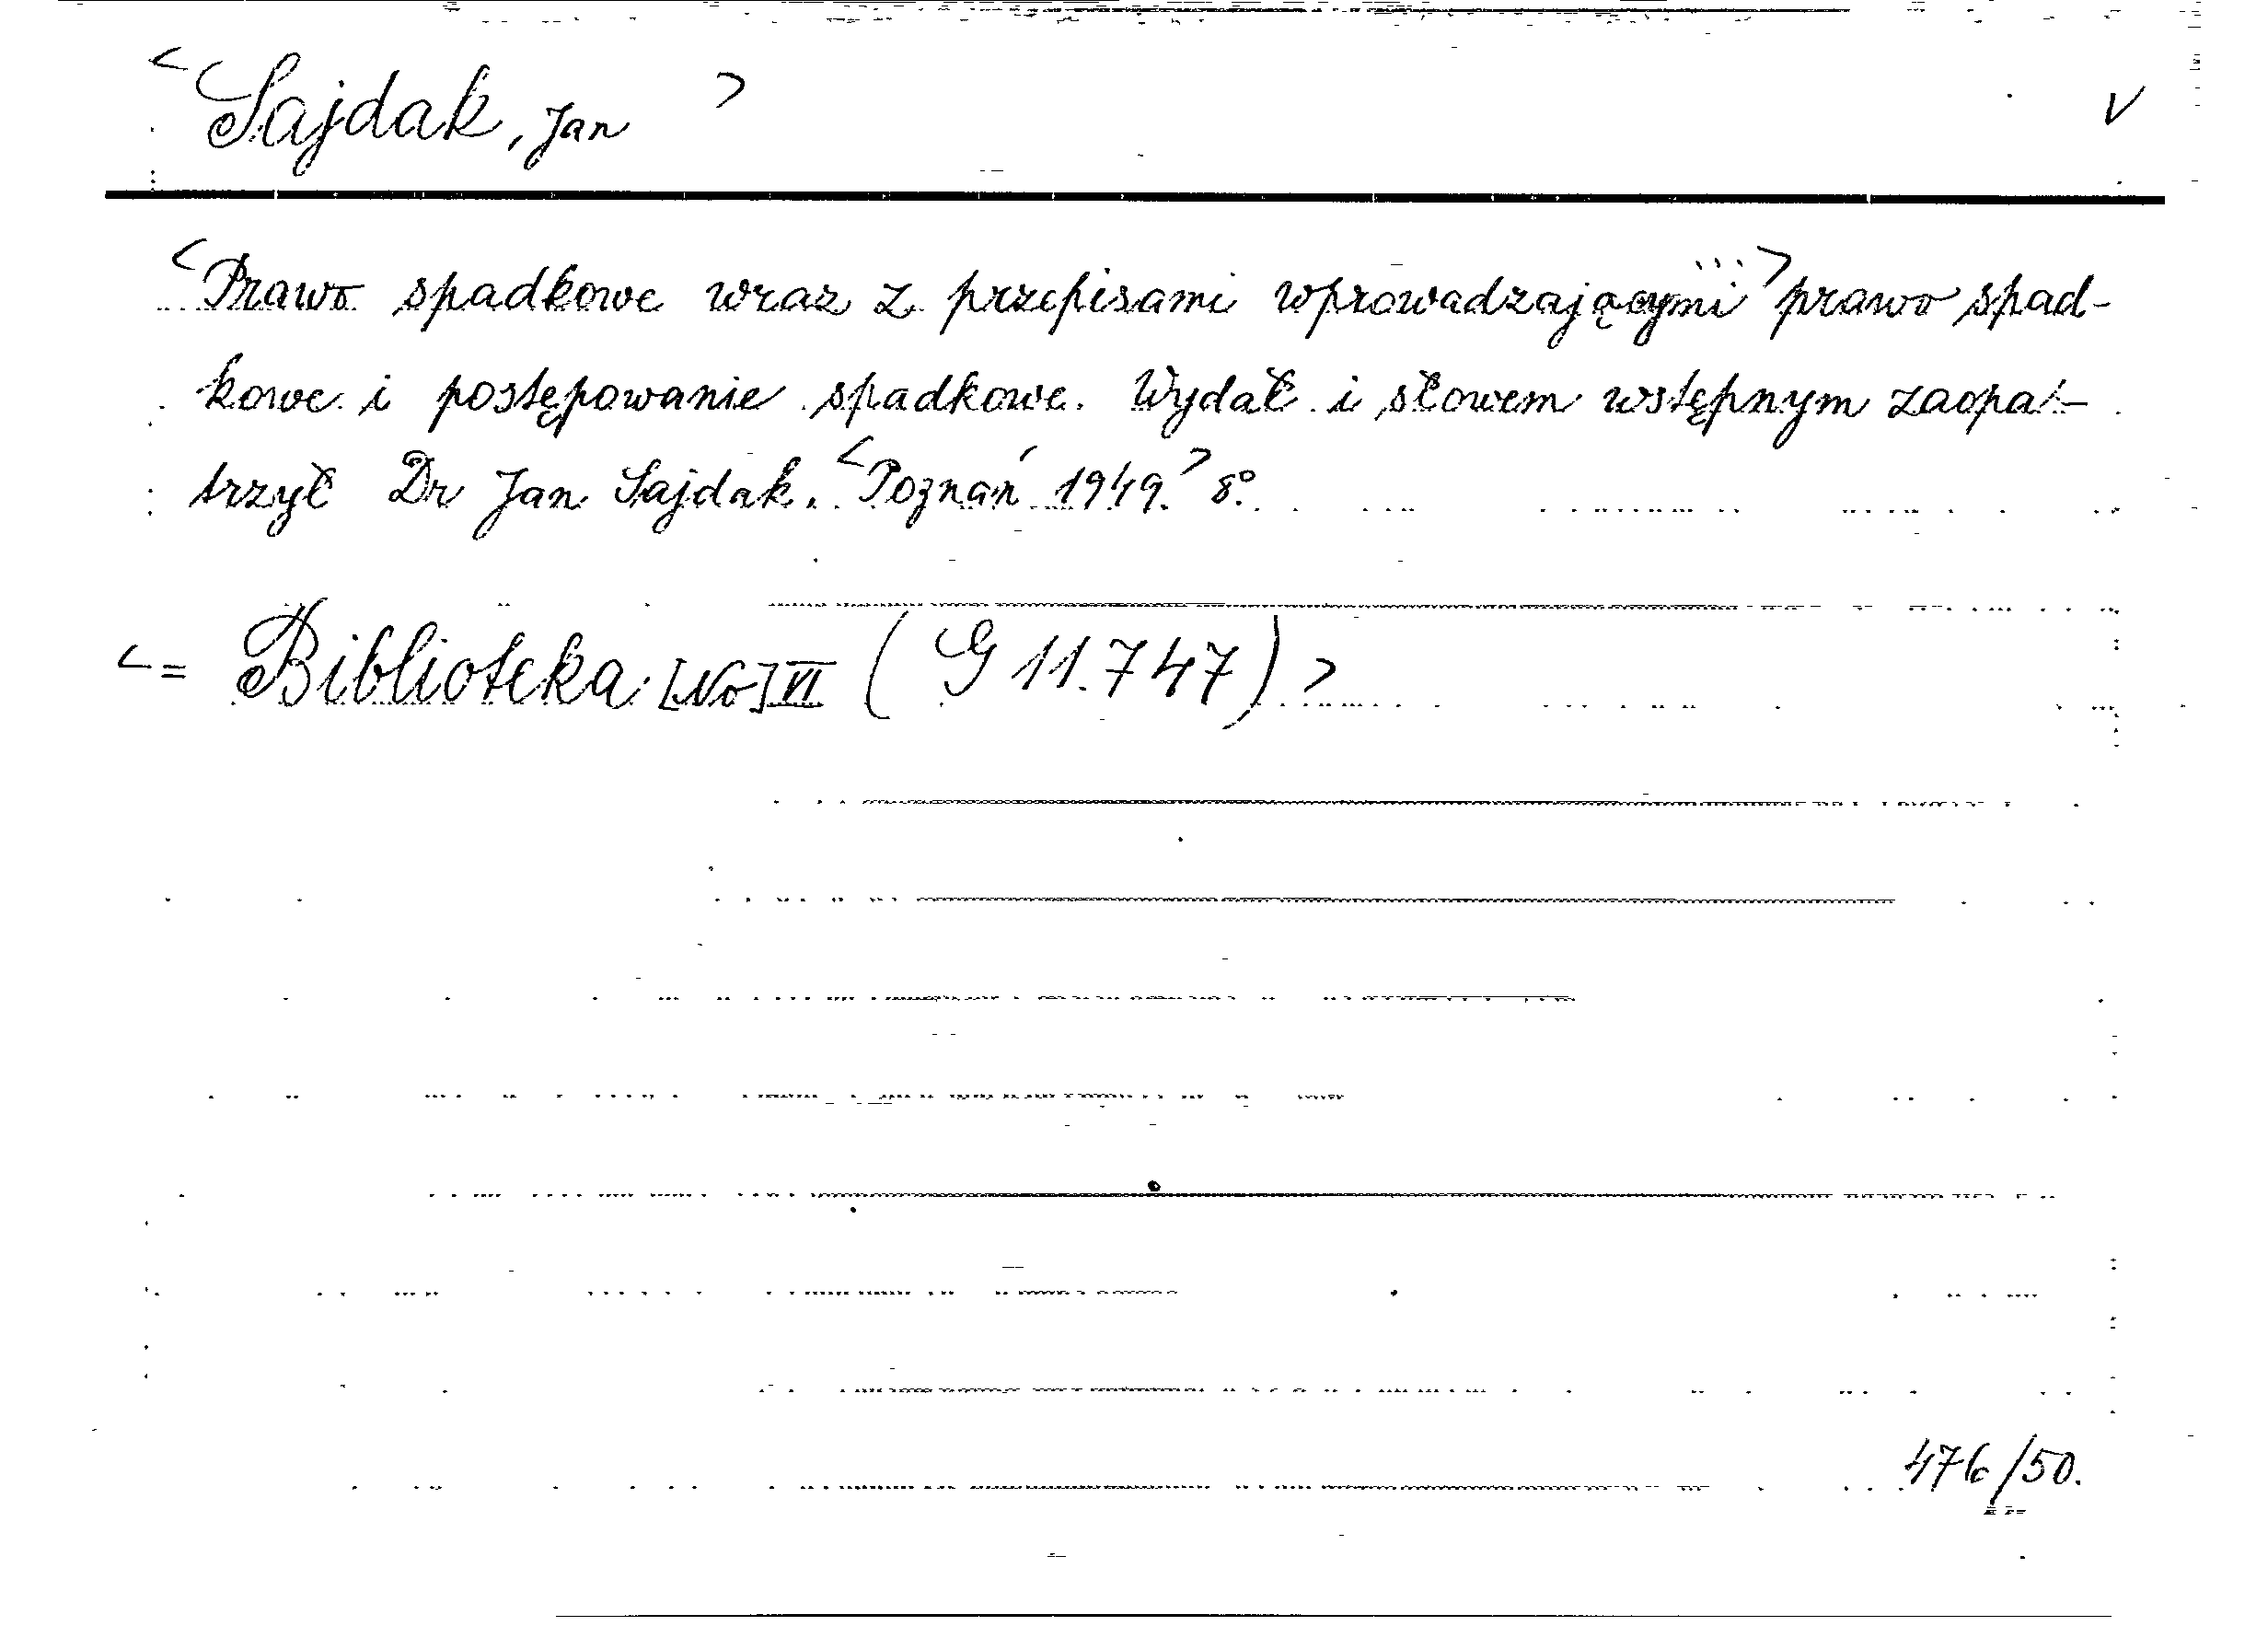 <Sajdak, Jan> V
<Prawo spadkowe wraz z przepisami wprowadzającymi ...> prawo spad-
kowe i postępowanie spadkowe. Wydał i słowem wstępnym zaopa-
trzył Dr Jan Sajdak. <Poznań 1949.> 8°.
<= Biblioteka [No] VI (G 11.747)>
476/50.